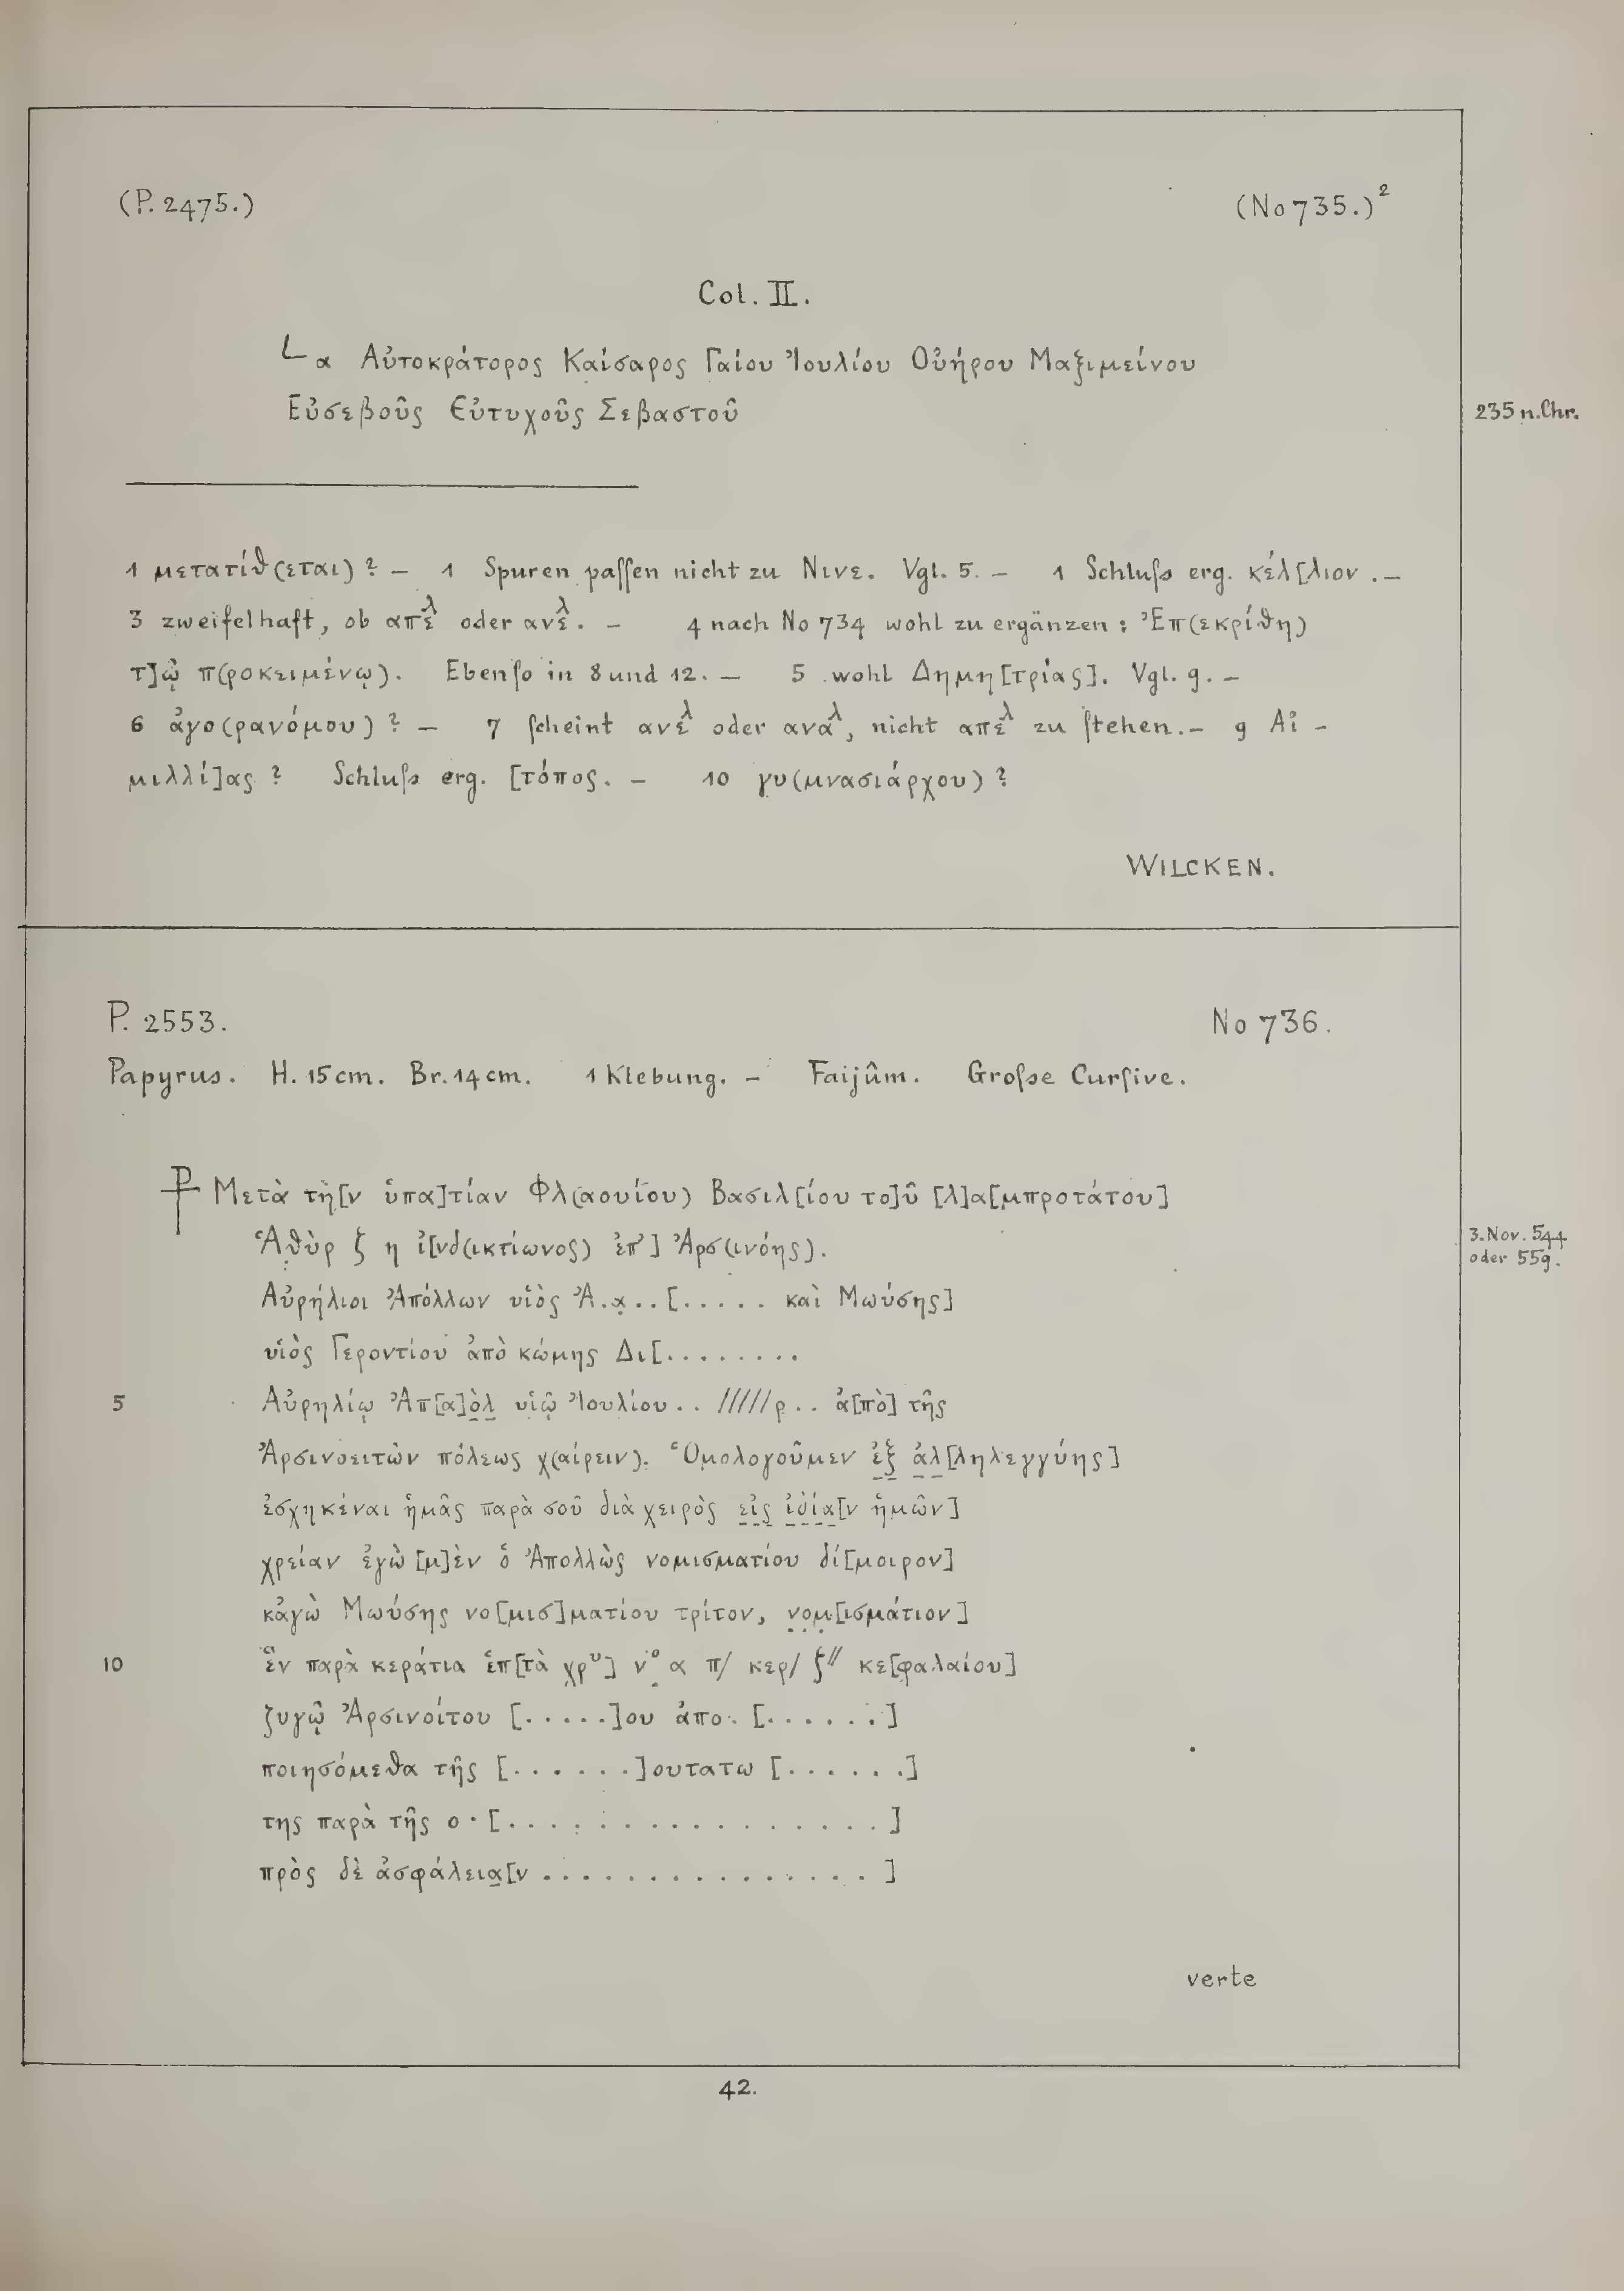 (P. 2475.) (No 735.)²
Col. II.
∟α Αὐτοκράτορος Καίσαρος Γαίου Ἰουλίου Οὐήρου Μαξιμείνου
Εὐσεβοῦς Εὐτυχοῦς Σεβαστοῦ
235 n. Chr.
1 μετατίθ(εται) ? – 1 Spuren paſſen nicht zu Νινε. Vgl. 5. – 1 Schluſs erg. κέλ[λιον. –
3 zweifelhaft, ob απε^λ oder ανε^λ. – 4 nach No 734 wohl zu ergänzen : Ἐπ(εκρίθη)
τ]ῷ π(ροκειμένῳ). Ebenſo in 8 und 12. – 5 wohl Δημη[τρίας]. Vgl. 9. –
6 ἀγο(ρανόμου) ? – 7 ſcheint ανε^λ oder ανα^λ, nicht απε^λ zu ſtehen. – 9 Αἰ –
μιλλί]ας ? Schluſs erg. [τόπος. – 10 γυ(μνασιάρχου) ?
WILCKEN.
P. 2553. No 736.
Papyrus. H. 15 cm. Br. 14 cm. 1 Klebung. – Faijûm. Groſse Curſive.
⳨ Μετὰ τὴ[ν ὑπα]τίαν Φλ(αουίου) Βασιλ[ίου το]ῦ [λ]α[μπροτάτου]
Ἁθὺρ ζ η ἰ[νδ(ικτίωνος) ἐπ’] Ἀρσ(ινόης).
3. Nov. 544
oder 559.
Αὐρήλιοι Ἀπόλλων υἱὸς Ἀ.χ̣..[..... καὶ Μωύσης]
υἱὸς Γεροντίου ἀπὸ κώμης Δι[........
5 Αὐρηλίῳ Ἀπ[α]ὸλ υἱῷ Ἰουλίου .. /////ρ .. ἀ[πὸ] τῆς
Ἀρσινοειτῶν πόλεως χ(αίρειν). Ὁμολογοῦμεν ἐξ ἀλ[ληλεγγύης]
ἐσχηκέναι ἡμᾶς παρὰ σοῦ διὰ χειρὸς εἰς ἰδία[ν ἡμῶν]
χρείαν ἐγὼ [μ]ὲν ὁ Ἀπολλὼς νομισματίου δί[μοιρον]
κἀγὼ Μωύσης νο[μισ]ματίου τρίτον, ν̣ο̣μ̣[ισμάτιον]
10 ἓν παρὰ κεράτια ἑπ[τὰ χρ^υ] ν^ο α π/ κερ/ ζ// κε[φαλαίου]
ζυγῷ Ἀρσινοίτου [.....]ου ἀπο. [......]
ποιησόμεθα τῆς [......]ουτατω [......]
της παρὰ τῆς ο.[................]
πρὸς δὲ ἀσφάλεια[ν ...............]
verte
42.